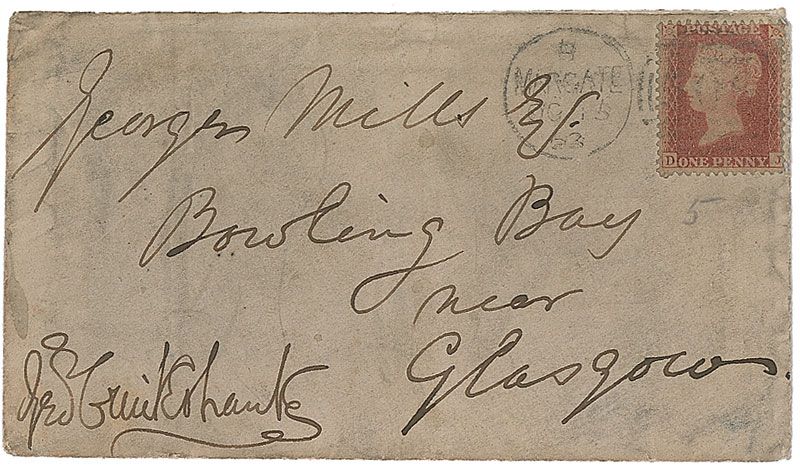 POSTAGE
ONE PENNY
D J
B
MARGATE
OC 15
63
George Mills Esq.
Bowling Bay
near
Glasgow.
Geo Cruikshank
5